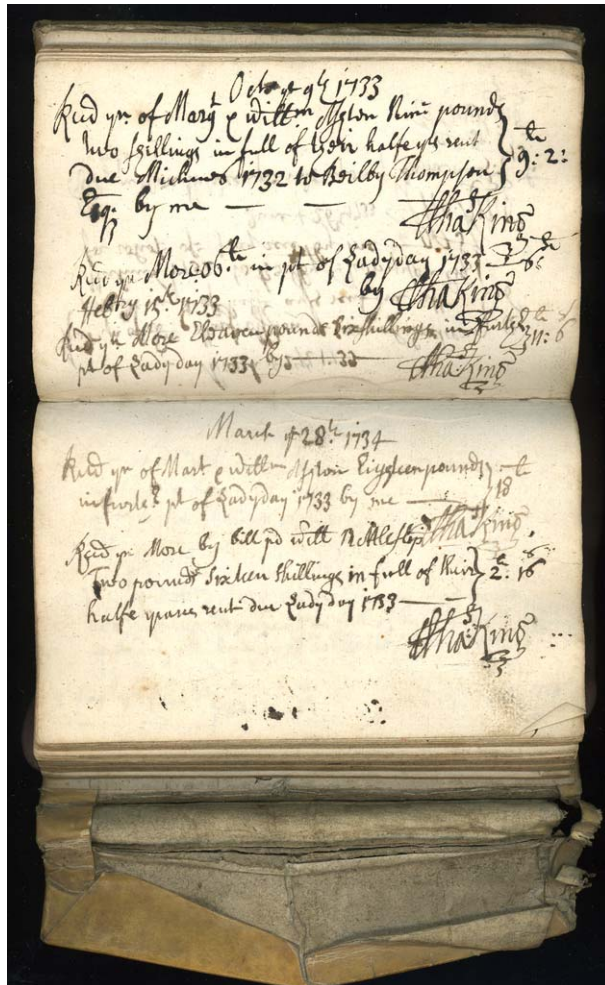 Octo ye 9th 1733
Recd yn of Mary & Willm Nine pounds
two shillings in full of their halfe yrs rent
due Michmas 1732 to Beilby Thompson
Esqr. by me — — 9 : 2 :
Tha: King
Recd yn More 06 li in pt of Ladyday 1733 6
by Tha: King
15th 1733
Recd yn More Eleaven pounds six shillings in further 11 : 6
pt of Ladyday 1733 by
Tha: King
March ye 28th 1734
Recd yn of Mart & Willm Eigteen pounds
in further pt of Ladyday 1733 by me — 18
Tha: King
Recd yn More by bill pd Will Nettleship
Two pounds Sixteen Shillings in full of their 2 : 16
halfe years rent due Ladyday 1733 —
Tha: King